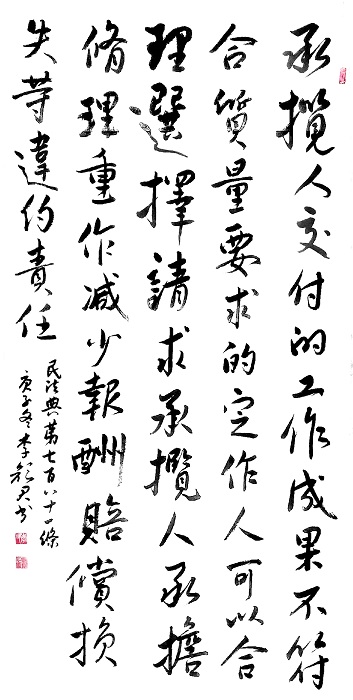 承攬人交付的工作成果不符
合質量要求的定作人可以合
理選擇請求承攬人承擔
脩理重作減少報酬賠償損
失等違約責任
民法典第七百八十一條
庚子冬李彩君书